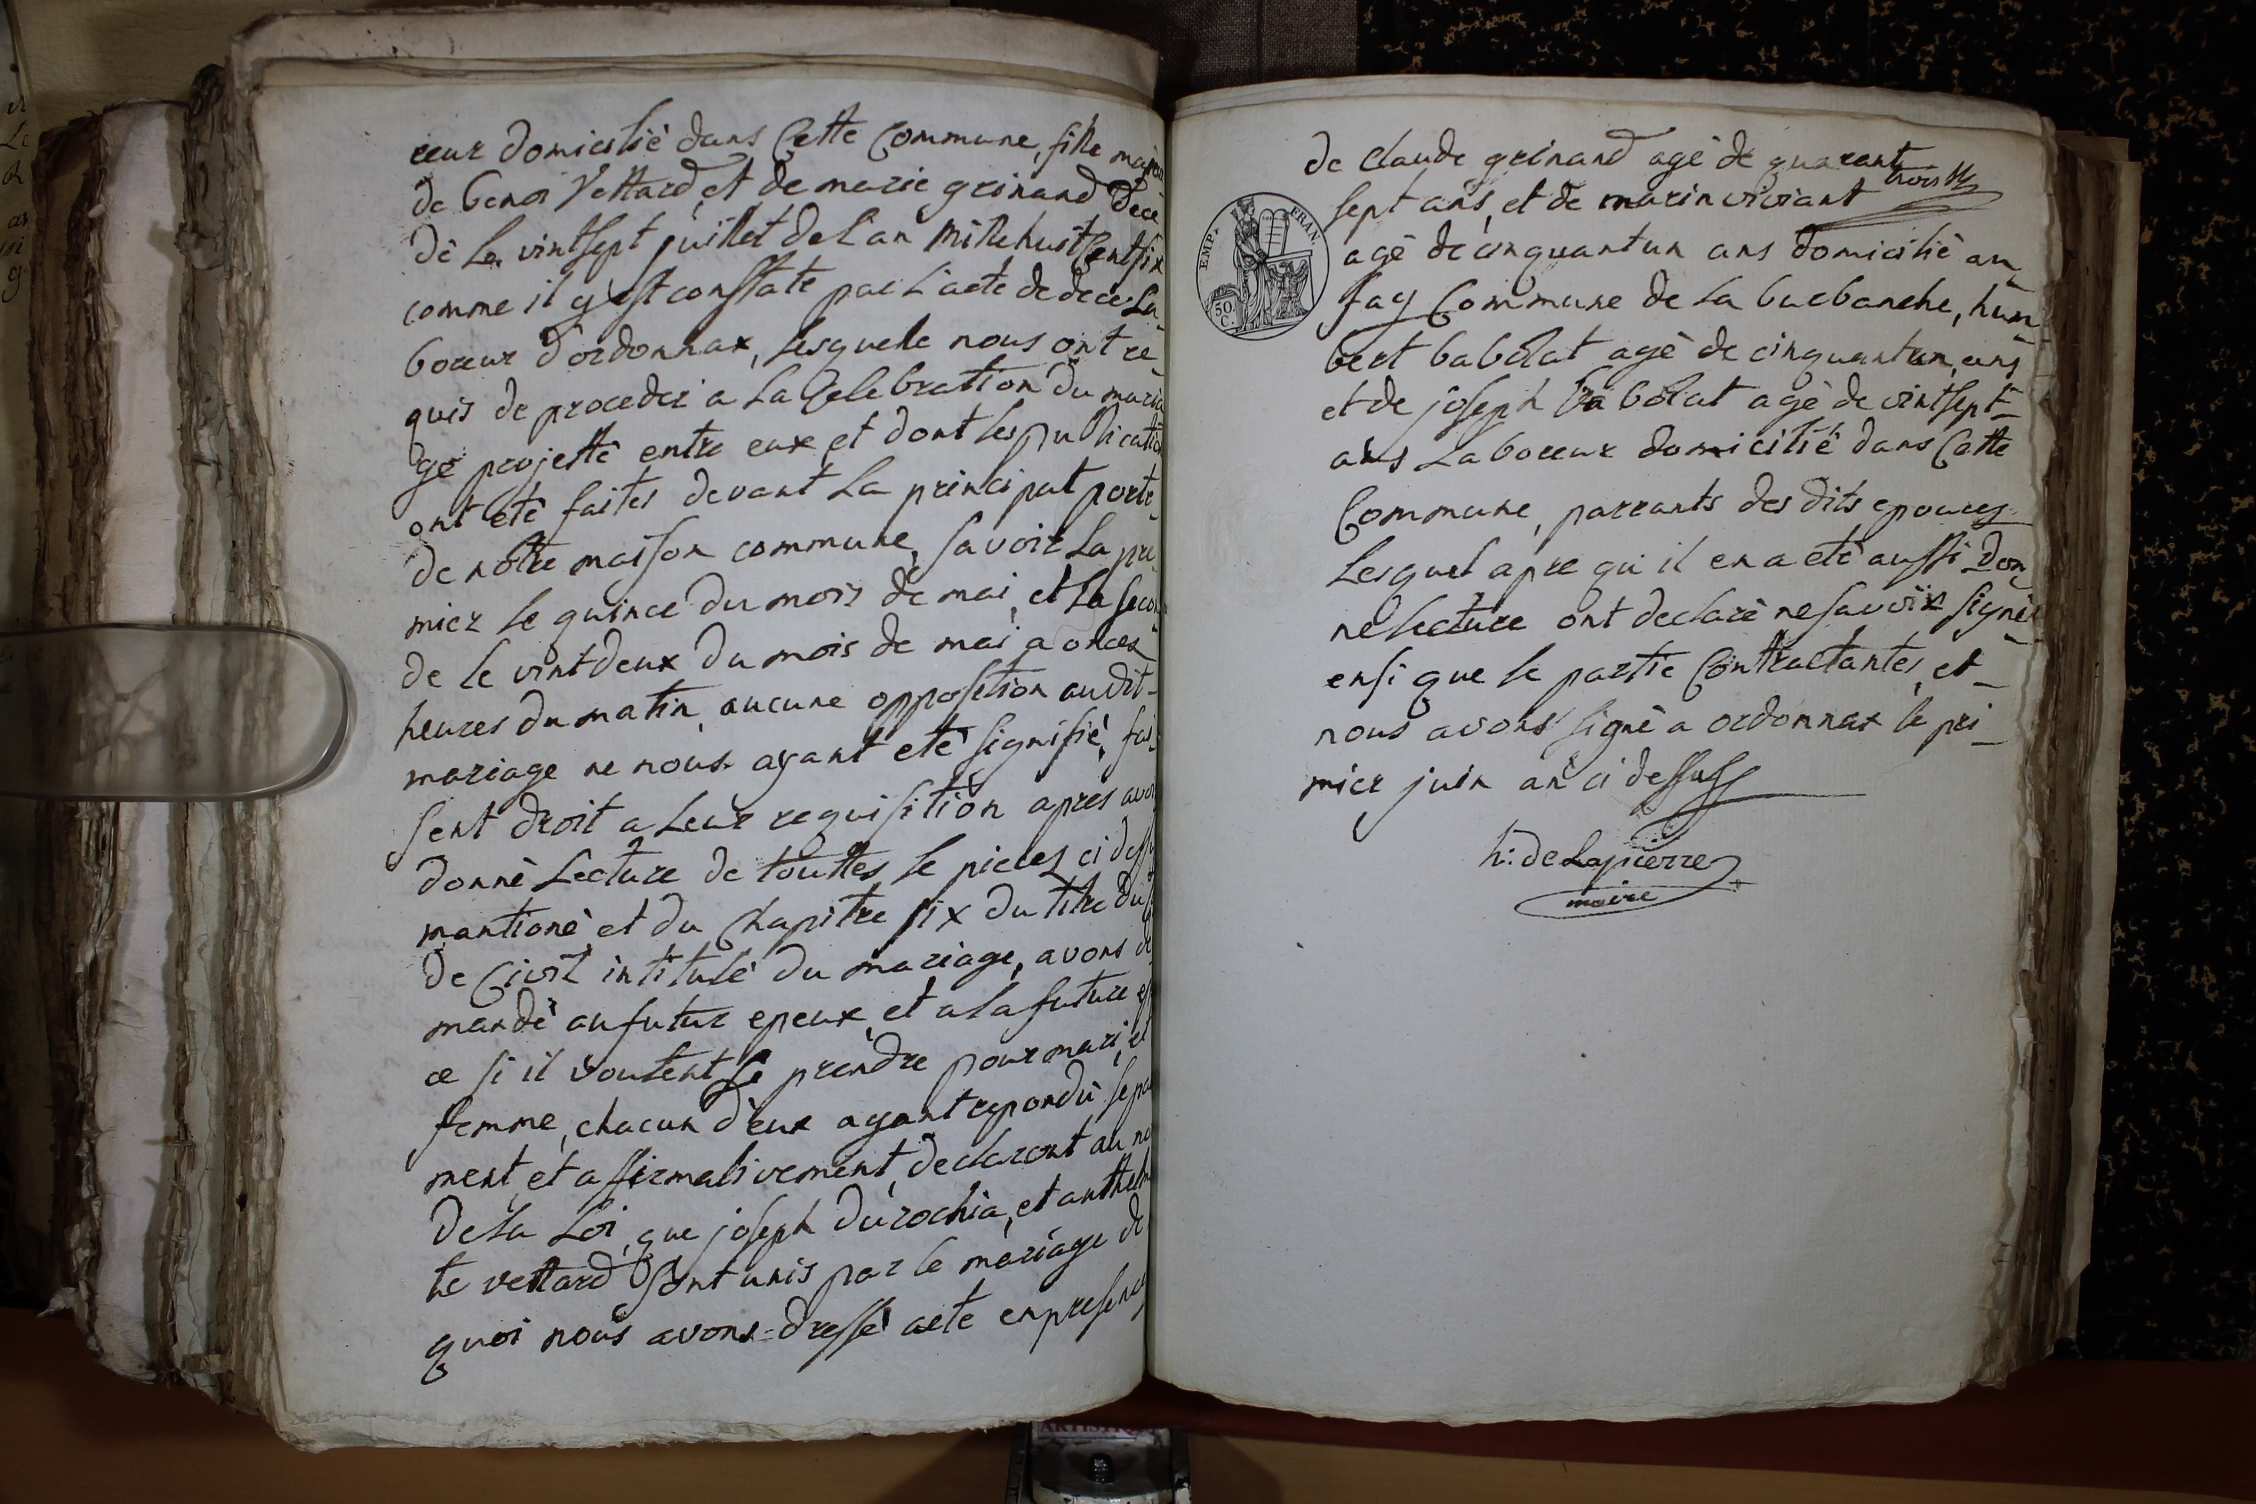 reur domicilié dans Cette Commune, fille majeur
de benoi Vettard, et de marie grinand dece
dé Le vintsept juillet de l'an mille huit Cent six
comme il y est constaté par L'acte de deces La
boreur d'ordonnax, lesquele nous ont re-
quis de proceder a La Celebration du maria
ge projetté entre eux et dont les publication
ont été faites devant La principal porte
de notre maison commune, savoir La pre
mier le quince du mois de mai, et La secon
de le vintdeux du mois de mai a onces
heures du matin, aucune opposition audit-
mariage ne nous ayant eté signifié, fai-
sent droit a Leur requisition apres avoir
donné Lecture de touttes le pieces ci dessu
mantioné et du Chapitre six du titre du
de Civil intitulé du mariage, avons de
mandé au futur epeux, et a la future ep
ce si il voulent se prendre pour mari, et
femme, chacun d'eux ayant repondu sepa
ment, et affirmativement, declaront au no
de La Loi, que joseph durochia, et anthelm
te vettard sont unis par le mariage de
quoi nous avons = dressé acte en presence
de Claude grinand agé de quarant
trois
sept ans, et de marin viviant
EMP. FRAN.
50. C.
agé de cinquantun ans domicilié au
fay Commune de La balbanche, hum
bert babolat agé de cinquantun ans
et de joseph babolat agé de vintsept-
ans Laboreur domicilié dans Cette
Commune, parrants des dits epouces
Lesquel apre qu'il en a eté aussi don
né lecture ont declaré ne savoir signér
ensi que le partie Contractantes, et
nous avons signé a ordonnax le pre
mier juin an ci dessuss
h: de Lapierre
maire